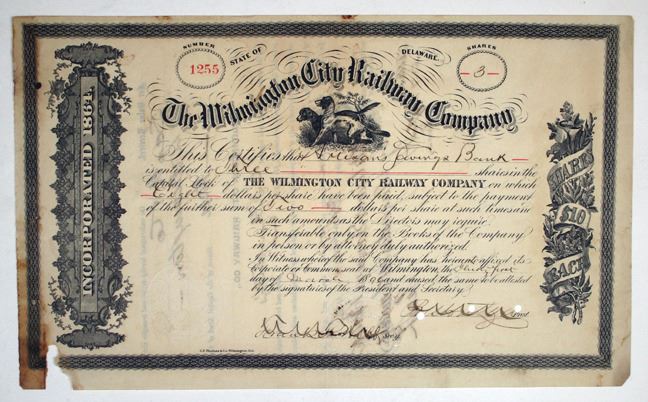 NUMBER
1255
STATE OF
DELAWARE.
SHARES
3
The Wilmington City Railway Company
INCORPORATED 1864.
This Certifies that Artizans Savings Bank
is entitled to Three shares in the
Capital Stock of THE WILMINGTON CITY RAILWAY COMPANY on which
Eight dollars per share have been paid, subject to the payment
of the further sum of Two dollars per share at such times and
in such amounts as the Directors may require.
Transferable only on the Books of the Company
in person or by attorney duly authorized.
In Witness whereof the said Company has hereunto affixed its
Corporate or Common seal at Wilmington, the Thirty first
day of March 189 and caused the same to be attested
by the signatures of the President and Secretary.
SHARES
$10
EACH